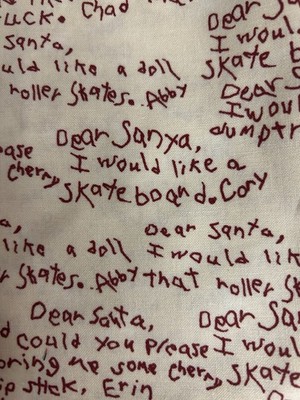 UCK. Chad
Dear Sa
Santa,
I woul
uld like a doll
skate b
roller skates. Abby
Dear S
I wou
Dear Sanya,
dumptr
ease
I would like a
cherry
skateboard. Cory
a,
Dear Santa,
like a doll
I would lik
r skates. Abby
that roller sk
Dear Santa,
Dear Sa
d could you please
I woul
bring me some cherry
skate
ip stick, Erin